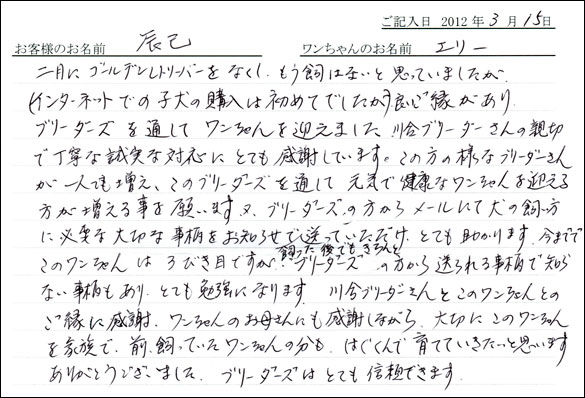 ご記入日 2012年3月15日
お客様のお名前 辰己 ワンちゃんのお名前 エリー
二月にゴールデンレトリーバーをなくし、もう飼はないと思っていましたが、
(インターネットでの子犬の購入は初めてでしたが)良いご縁があり
ブリーダーズを通してワンちゃんを迎えました 川合ブリーダーさんの親切
で丁寧な誠実な対応にとても感謝しています。この方の様なブリーダーさん
が一人でも増え、このブリーダーズを通して元気で健康なワンちゃんを迎える
方が増える事を願います 又、ブリーダーズの方からメールにて犬の飼い方
に必要な大切な事柄をお知らせで送っていただけ、とても助かります。今までで
このワンちゃんは3びき目ですが 飼った後でもきちんと ブリーダーズの方から送られる事柄で知ら
ない事柄もあり、とても勉強になります 川合ブリーダーさんとこのワンちゃんとの
ご縁に感謝、ワンちゃんのお母さんにも感謝しながら、大切にこのワンちゃん
を家族で、前、飼っていたワンちゃんの分も、はぐくんで育てていきたいと思います
ありがとうございました。ブリーダーズはとても信頼できます。